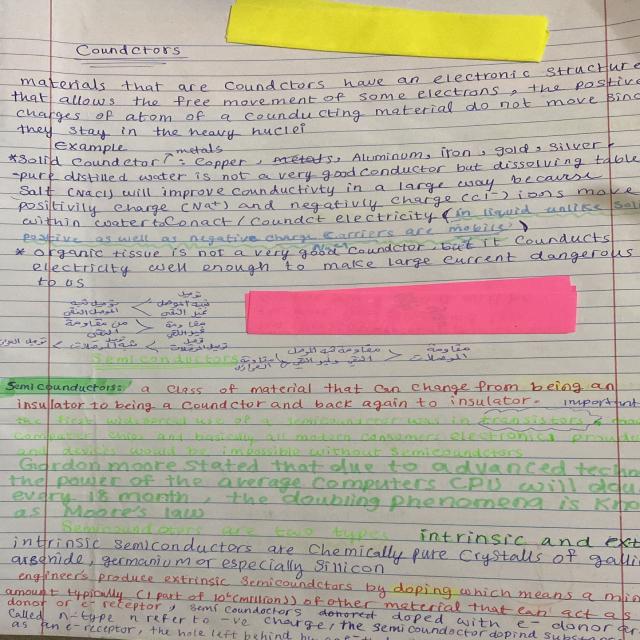 Coundctors
materials that are coundctors have an electronic structure
that allows the free movement of some electrons, the postive
charges of atom of a counducting material do not move sinc
they stay in the heavy nuclei
Example
metals
*Solid Coundctor: Copper, metals, Aluminum, iron, gold, silver
-pure distilled water is not a very good conductor but dissolving table
salt (Nacl) will improve counductivty in a large way because
positivily charge (Na+) and negativly charge (cl-) ions move
within water to Conact / Coundct electricity (in liquid unlike soli
postive as well as negative charge carriers are mobile)
* organic tissue is not a very good Coundctor, but it Counducts
electricity well enough to make large current dangerous
to us
Semiconductors
Semicounductors: a class of material that can change from being an
insulator to being a coundctor and back again to insulator- important
the first widespread use of a semiconductor was in transistors &
computer chips and basically all modern consumers electronics
and devices would be impossible without semiconductors
Gordon moore stated that due to advanced techn
the power of the average computers CPU will dou
every 18 month, the doubling phenomena is kno
as Moore's law
Semicoundctors are two types intrinsic and ext
intrinsic semiconductors are chemically pure crystalls of galli
arsenide, germanium or especially Sillicon
engineers produce extrinsic semicoundctors by doping which means a min
amount typically (1 part of 10⁶(million)) of other material that can act as
donor or e- receptor, semi coundctors doped with e- donor are
called n-type n refer to -ve charge, the semicoundctor dopind subst
as an e- receptor, the hole left behind by